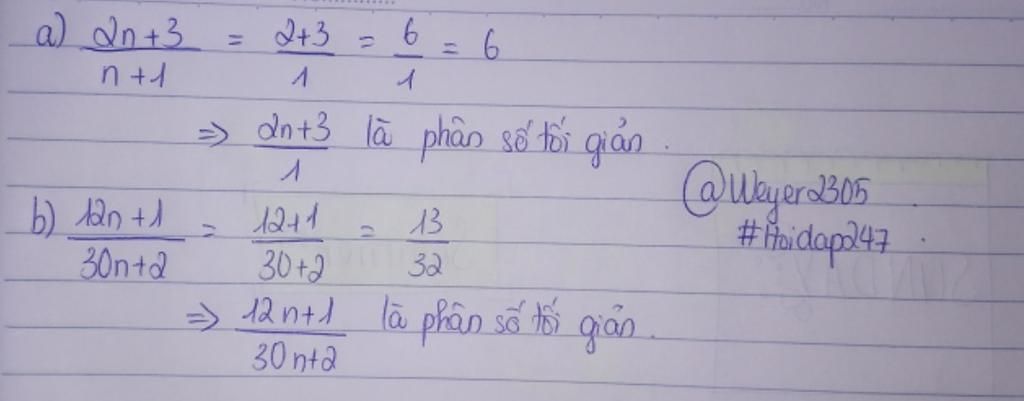 a) 2n+3/n+1 = 2+3/1 = 6/1 = 6
⇒ 2n+3/1 là phân số tối giản.
@Weyer2305
b) 12n+1/30n+2 = 12+1/30+2 = 13/32
#Hoidap247.
⇒ 12n+1/30n+2 là phân số tối giản.